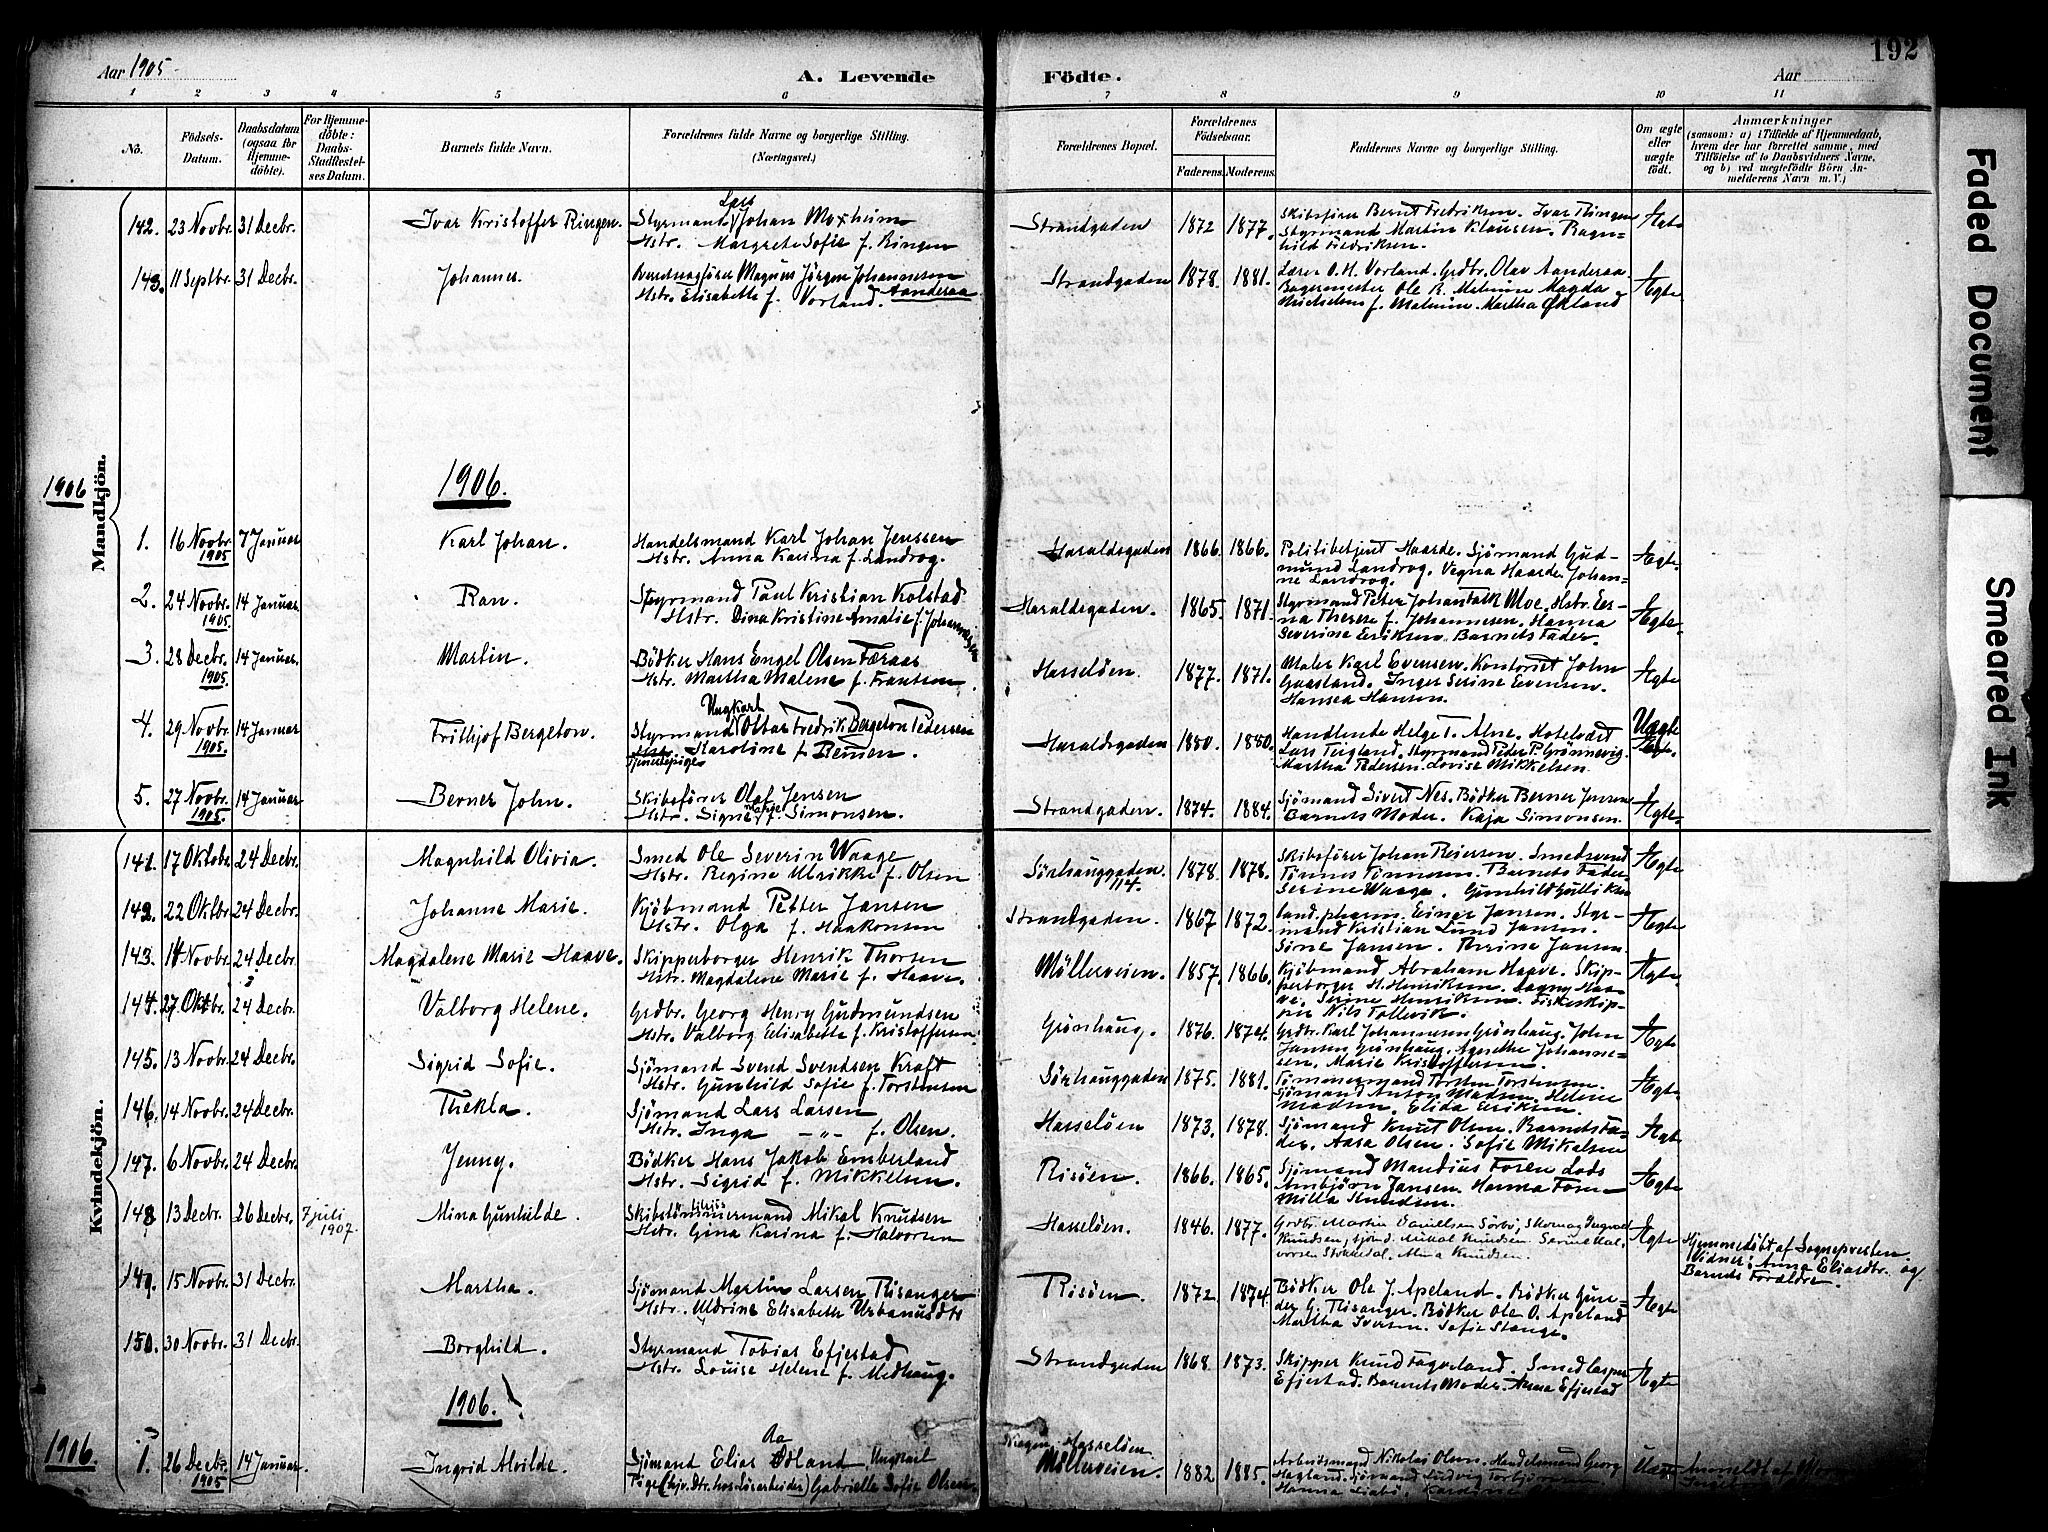 192
Aar 1905
A. Levende Födte.
Aar
1 2 3 4 5 6 7 8 9 10 11
No.
Födsels-Datum.
Daabsdatum (ogsaa for Hjemme-döbte).
For Hjemme-döbte: Daabs-Stadfæstel-ses Datum.
Barnets fulde Navn.
Forældrenes fulde Navne og borgerlige Stilling. (Næringsvei.)
Forældrenes Bopæl.
Forældrenes Födselsaar.
Faderens. Moderens.
Faddernes Navne og borgerlige Stilling.
Om ægte eller uægte födt.
Anmærkninger
(saasom: a) i Tilfælde af Hjemmedaab, hvem der har forrettet samme, med Tilföielse af to Daabsvidners Navne, og b) ved uægtefödte Börn An-melderens Navn m. V.)
Mandkjön.
142. 23 Novbr. 31 Decbr. Ivar Kristoffer Ringen. Styrmand Lars Johan Moxheim
Hstr. Margrete Sofie f. Ringen
Strandgaden 1872 1877. Skibsförer Bernt Fredriksen. Ivar Ringen
Styrmand Martin Klausen. Ragn-
hild Fredriksen. Ægte
143. 11 Septbr. 31 Decbr. Johannes. Magnus Jörgen Johannesen Aanderaa
Hstr. Elisabeth f. Vorland.
Strandgaden 1878. 1881. Lærer O. H. Vorland. Grdbr. Olav Aanderaa.
Bagermester Ole R. Malmin Magda
Michelsens f. Malmin. Martha Økland Ægte
1906
1906.
1. 16 Novbr. 1905 7 Januar Karl Johan. Handelsmand Karl Johan Jenssen
Hstr. Anna Karina f. Landrog.
Haraldsgaden 1866. 1866. Politibetjent Haarde. Sjömand Gud-
mund Landrog. Vegna Haarde. Johan-
ne Landrog. Ægte.
2. 24 Novbr. 1905. 14 Januar Ran. Styrmand Paul Kristian Kolstad
Hstr. Dina Kristine Amalie f. Johannesen
Haraldsgaden. 1865. 1871. Styrmand Peter Johan Falk Moe. Hstr. Ber-
na Therese f. Johannesen. Hanna
Severine Eriksen. Barnets Fader. Ægte.
3. 28 Decbr. 1905. 14 Januar. Martin. Bödker Hans Engel Olsen Færaas
Hstr. Martha Malene f. Frantsen.
Hasselöen. 1877. 1871. Maler Karl Evensen. Kontorist John
Gaasland. Inger Serine Evensen.
Hansea Hansen. Ægte
4. 29 Novbr. 1905. 14 Januar Frithjof Bergeton. Styrmand Ungkarl Ottar Fredrik Bergeton Pedersen
Tjenestepige Karoline f Bennen.
Haraldsgaden 1880. 1880. Handlende Helge T. Alne. Hotelvært
Lars Teigland. Styrmand Peder P. Grönnevig.
Martha Pedersen. Lovise Mikkelsen. Uægte
5. 27 Novbr. 1905. 14 Januar Berner John. Skibsförer Olaf Jensen
Hstr. Signe f. Simonsen.
Strandgaden. 1874. 1884. Sjömand Sivert Nes. Bödker Berner Jensen
Barnets Moder. Kaja Simonsen. Ægte.
Kvindekjön.
141. 17 Oktobr. 24 Decbr. Magnhild Olivia. Smed Ole Severin Waage
Hstr. Regine Ulrikke f. Olsen
Sörhauggaden. 114. 1878. 1878. Skibsförer Johan Reiersen. Smedsvend
Tönnes Tönnesen. Barnets Fader.
Serine Waage. Gunhild Gulliksen Ægte
142. 22 Oktbr. 24 Decbr. Johanne Marie. Kjöbmand Petter Jansen
Hstr. Olga f. Haakonsen
Strandgaden. 1867 1872. Cand. pharm. Einar Jansen. Styr-
mand Kristian Lund Jansen.
Sine Jansen. Persine Jansen. Ægte
143. 14 Novbr. 24 Decbr. Magdalene Marie Haave. Skipperborger Henrik Thorsen
Hstr. Magdalene Marie f. Haave.
Möllerveien. 1857. 1866. Kjöbmand Abraham Haave. Skip-
perborger H. Henriksen. Dagny Haa-
ve. Serine Henriksen. Fiskeskip-
per Nils Follevik. Ægte
144. 27 Oktbr. 24 Decbr. Valborg Helene. Grdbr. Georg Henry Gudmundsen
Hstr. Valborg Elisabeth f. Kristoffersen
Grönhaug. 1876. 1874. Grdbr. Karl Johannesen Grönhaug. John
Jansen Grönhaug. Agnethe Johanne-
sen. Marie Kristoffersen. Ægte
145. 13 Novbr. 24 Decbr. Sigrid Sofie. Sjömand Svend Svendsen Kraft
Hstr. Gunhild Sofie f. Torstensen
Sörhauggaden 1875. 1881. Tömmermand Torsten Torstensen.
Sjömand Anton Madsen. Helene
Madsen. Elida Eriksen. Ægte
146. 14 Novbr. 24 Decbr. Thekla. Sjömand Lars Larsen
Hstr. Inga -"- f. Olsen.
Hasselöen 1873. 1878. Sjömand Knut Olsen. Barnets Fa-
der. Aasa Olsen. Sofie Mikalsen Ægte
147. 6 Novbr. 24 Decbr. Jenny. Bödker Hans Jakob Emberland
Hstr. Sigrid f. Mikkelsen.
Risöen. 1866. 1865. Sjömand Mandius Foren. Lods
Arnbjörn Jansen. Hanna Foren
Milla Knudsen. Ægte
148. 13 Decbr. 26 Decbr. 7 juli 1907. Mina Gunhilde. Skibstömmermand Mikal Knudsen
Hstr. Gina Karina f. Halvorsen
Hasselöen. 1846. 1877. Grdbr. Martin Danielsen Sörbö, Skomag. Ingvald
Knudsen, sjömd. Mikal Knudsen. Serine Hal-
vorsen Stokkedal, Alma Knudsen. Ægte Hjemmedöbt af Sognepresten
Vidner: Anna Eliasdtr. og
Barnets Forældre.
149. 15 Novbr. 31 Decbr. Martha. Sjömand Martin Larsen Risanger
Hstr. Aldrine Elisabeth Urbanusdtr
Risöen. 1872 1874. Bödker Ole J. Apeland. Bödker Gun-
der G. Risanger. Bödker Ole O. Apeland
Martha Iversen. Sofie Stange. Ægte
150. 30 Novbr. 31 Decbr. Borghild. Styrmand Tobias Efjestad
Hstr. Louise Helene f. Medhaug.
Strandgaden 1868. 1873. Skipper Knud Fagveland. Smed Casper
Efjestad. Barnets Moder. Anna Efjestad Ægte
1906.
1906.
1. 26 Decbr. 1905 14 Januar Ingrid Alvilde. Sjömand Elias Aadland Ungkarl
Pige Gabrielle Sofie Olsen.
Hasselöen
Möllerveien. 1882 1885. Arbeidsmand Nikolai Olsen. Handelsmand Georg
Hagland. Sjömand Ludvig
Hanna Uægte Anmeldt af
Faded Document
Smeared Ink